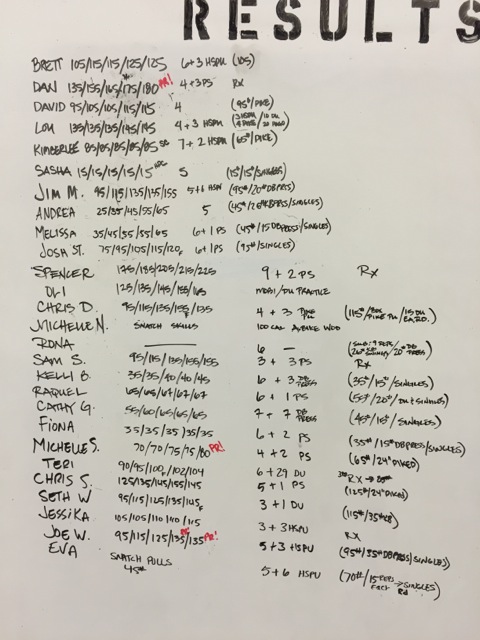 RESULTS
BRETT 105/115/115/125/125 6+3 HSPU (105)
DAN 135/155/165/175/180 PR! 4+3PS RX
DAVID 95/105/105/115/115 4 (95#/PIKE)
LOU 135/135/135/145/145 4+3 HSPU
KIMBERLEE 85/85/85/85/85 7+2 HSPU (65#/PIKE)
SASHA 15/15/15/15/15 5 (15#/15#/SINGLES)
JIM M. 95/115/135/135/155 5+6 HSPU (95#/20# DB PRESS)
ANDREA 25/35/45/55/65 5 (45#/20# DB PRESS/SINGLES)
MELISSA 35/45/55/55/65 6+1 PS (45#/15 DB PRESS/SINGLES)
JOSH ST. 75/95/105/115/120F 6+1PS (95#/SINGLES)
SPENCER 175/185/205/215/225 9+2 PS RX
125/135/145/155/165 MOBI/DU PRACTICE
CHRIS D. 95/115/135/155/135 4+3 PIKE PU
MICHELLE N. SNATCH SKILLS 100 CAL
RONA — 6 —
SAM S. 95/115/135/155/155 3+3 PS RX
KELLI B. 35/35/40/40/45 6+3 DB PRESS (35#/15#/SINGLES)
RAQUEL 65/65/67/67/67 6+1 PS
CATHY G. 55/60/65/65/65 7+7 DB PRESS (45#/15#/SINGLES)
FIONA 35/35/35/35/35 6+2 PS (35#/15# DB PRESS/SINGLES)
MICHELLE S. 70/70/75/75/80 PR! 4+2 PS (65#/24" PIKED)
TERI 90/95/100/102/104 6+29 DU RX
CHRIS S. 125/135/145/155/145 5+1 PS (125#/24" PIKED)
SETH W 95/115/125/135/145F 3+1 DU (115#/35# KB)
JESSIKA 105/105/110/110/115 3+3 HSPU RX
JOE W. 95/115/125/135/135 PR! 5+3 HSPU (95#/35# DB PRESS/SINGLES)
EVA SNATCH PULLS 45# 5+6 HSPU